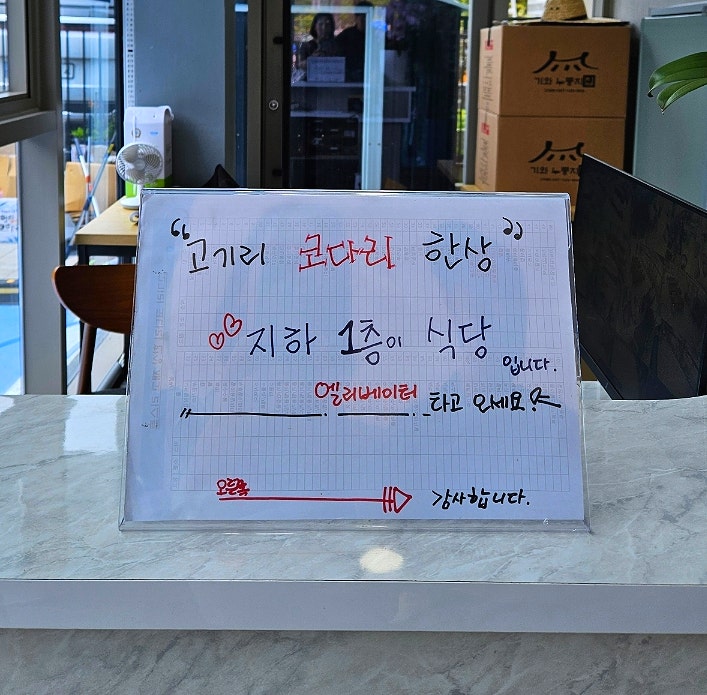 기와 누룽지
기와 누룽지
"고기리 코다리 한상"
지하 1층이 식당
입니다.
엘리베이터 타고 오세요.
오른쪽
감사합니다.